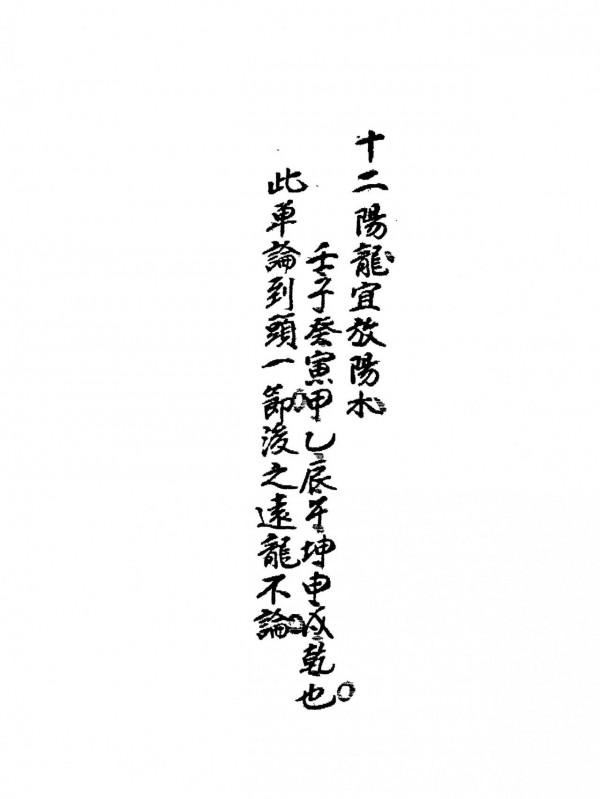 十二陽龍宜放陽水
壬子癸寅甲乙辰午坤申戌乾也
此单論到頭一節後之遠龍不論